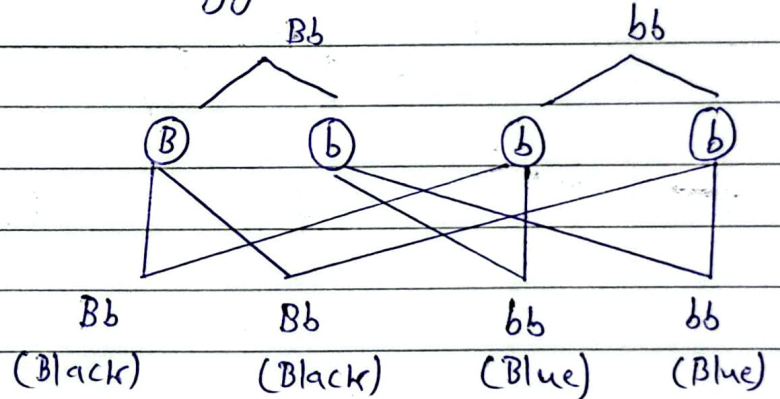 Bb bb
B b b b
Bb Bb bb bb
(Black) (Black) (Blue) (Blue)